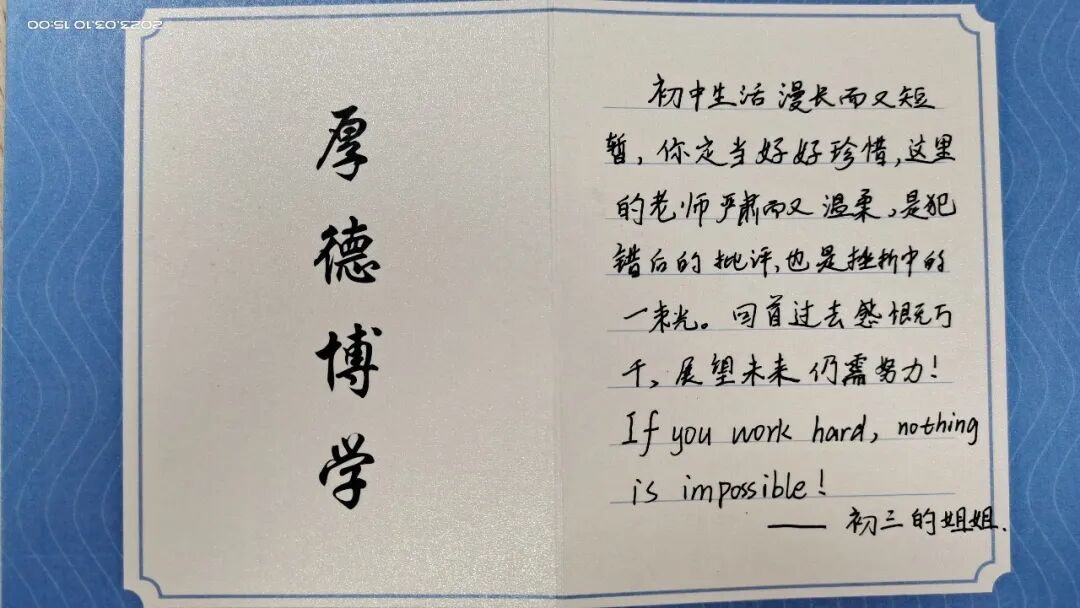 2023.03.10 15:00
厚德博学
初中生活漫长而又短
暂，你定当好好珍惜，这里
的老师严肃而又温柔，是犯
错后的批评，也是挫折中的
一束光。回首过去感慨万
千，展望未来仍需努力！
If you work hard, nothing
is impossible!
——初三的姐姐.